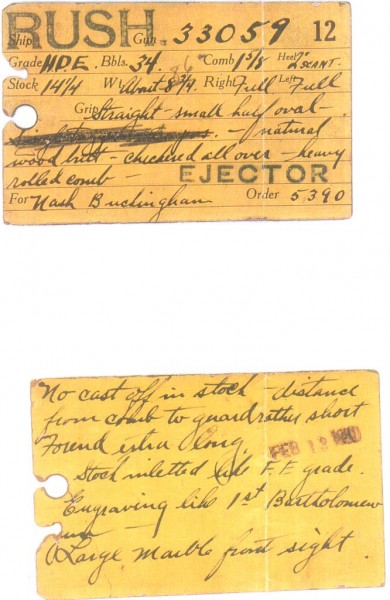 RUSH
Ship Gun 33059 12
Grade H.D.E. Bbls. 34 36" Comb 1 5/8 Heel 2" SCANT.
Stock 14 1/4 Wt About 8 3/4 Right Full Left Full
Grip Straight - small half oval -
- natural
wood butt - checkered all over - heavy
rolled comb - EJECTOR
For Nash Buckingham Order 5390
No cast off in stock - distance
from comb to guard rather short
Forend extra long.
FEB 19
Stock inletted like F.E grade.
Engraving like 1st Bartholomew
gun
A Large Marble front sight.